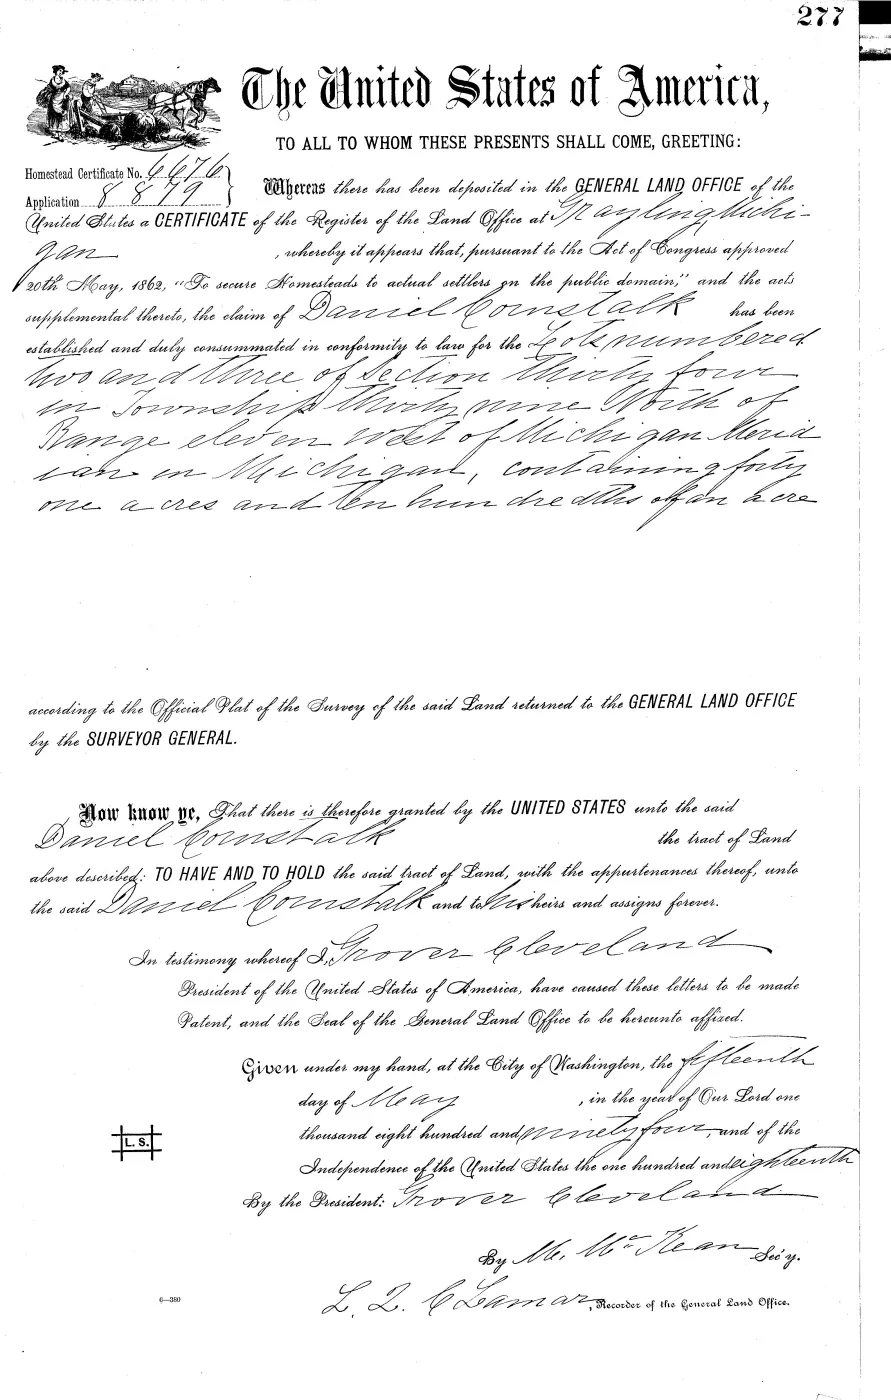 277
The United States of America,
TO ALL TO WHOM THESE PRESENTS SHALL COME, GREETING:
Homestead Certificate No. 6676
Application 8879
Whereas there has been deposited in the GENERAL LAND OFFICE of the
United States a CERTIFICATE of the Register of the Land Office at Grayling, Michi-
gan , whereby it appears that, pursuant to the Act of Congress approved
20th May, 1862, "To secure Homesteads to actual settlers on the public domain," and the acts
supplemental thereto, the claim of Daniel Cornstalk has been
established and duly consummated in conformity to law for the Lots numbered
two and three of Section thirty four
in Township thirty nine North of
Range eleven West of Michigan Merid
ian in Michigan, containing forty
one acres and ten hundredths of an acre
according to the Official Plat of the Survey of the said Land returned to the GENERAL LAND OFFICE
by the SURVEYOR GENERAL.
Now know ye, That there is therefore granted by the UNITED STATES unto the said
Daniel Cornstalk the tract of Land
above described: TO HAVE AND TO HOLD the said tract of Land, with the appurtenances thereof, unto
the said Daniel Cornstalk and to his heirs and assigns forever.
In testimony whereof I, Grover Cleveland
President of the United States of America, have caused these letters to be made
Patent, and the Seal of the General Land Office to be hereunto affixed.
Given under my hand, at the City of Washington, the fifteenth
day of May , in the year of Our Lord one
thousand eight hundred and ninety four, and of the
L. S.
Independence of the United States the one hundred and eighteenth
By the President: Grover Cleveland
By M. McKean Sec'y.
6—380
L. Q. C Lamar, Recorder of the General Land Office.